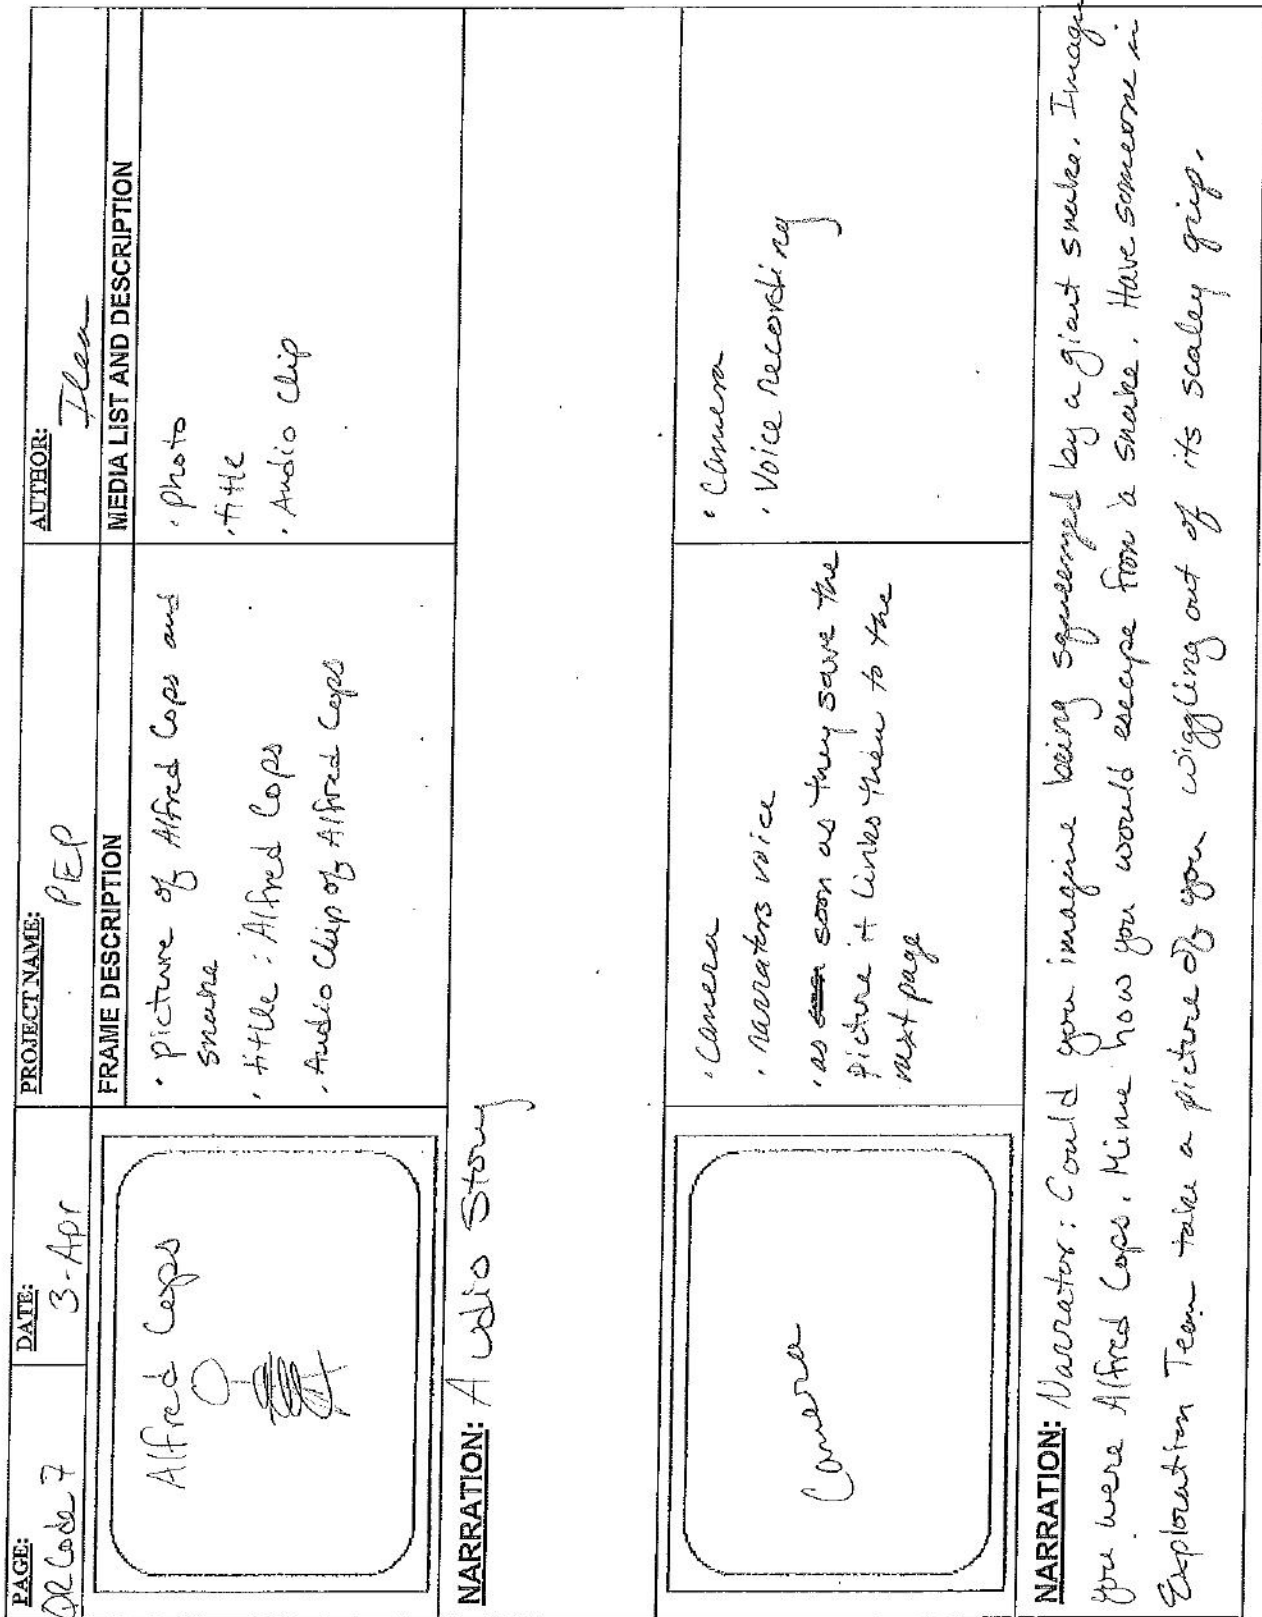 PAGE:
QR Code 7
DATE:
3-Apr
PROJECT NAME:
PEP
AUTHOR:
Ilea
FRAME DESCRIPTION
MEDIA LIST AND DESCRIPTION
Alfred Cops
· picture of Alfred Cops and
snake
· title : Alfred Cops
· Audio Clip of Alfred Cops
· Photo
· title
· Audio Clip
NARRATION: Audio Story
Camera
· Camera
· narrators voice
· as soon as they save the
picture it links them to the
next page
· Camera
· Voice recording
NARRATION: Narrator: Could you imagine being squeezed by a giant snake. Imag
you were Alfred Cops. Mime how you would escape from a snake. Have someone in
Exploration Team take a picture of you wiggling out of its scaley grip.